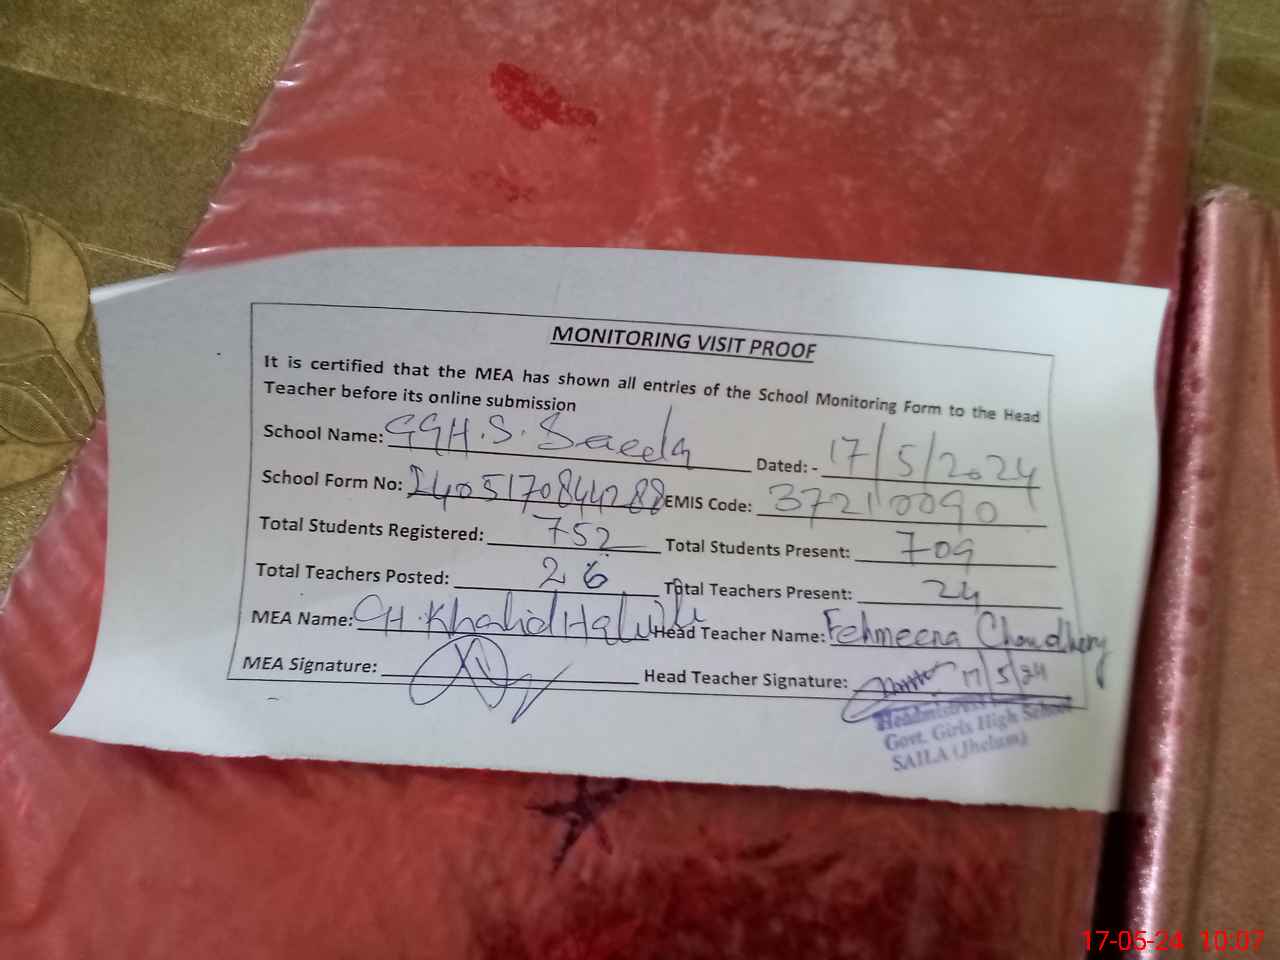 MONITORING VISIT PROOF
It is certified that the MEA has shown all entries of the School Monitoring Form to the Head
Teacher before its online submission
School Name: GGH.S. Saeela Dated: - 17/5/2024
School Form No: 2405170844288 EMIS Code: 37210090
Total Students Registered: 752 Total Students Present: 709
Total Teachers Posted: 26 Total Teachers Present: 24
MEA Name: CH. Khalid Head Teacher Name: Fehmeena Choudhery
MEA Signature: Head Teacher Signature: 17/5/24
Headmistress
Govt. Girls High School
SAILA (Jhelum)
17-05-24 10:07